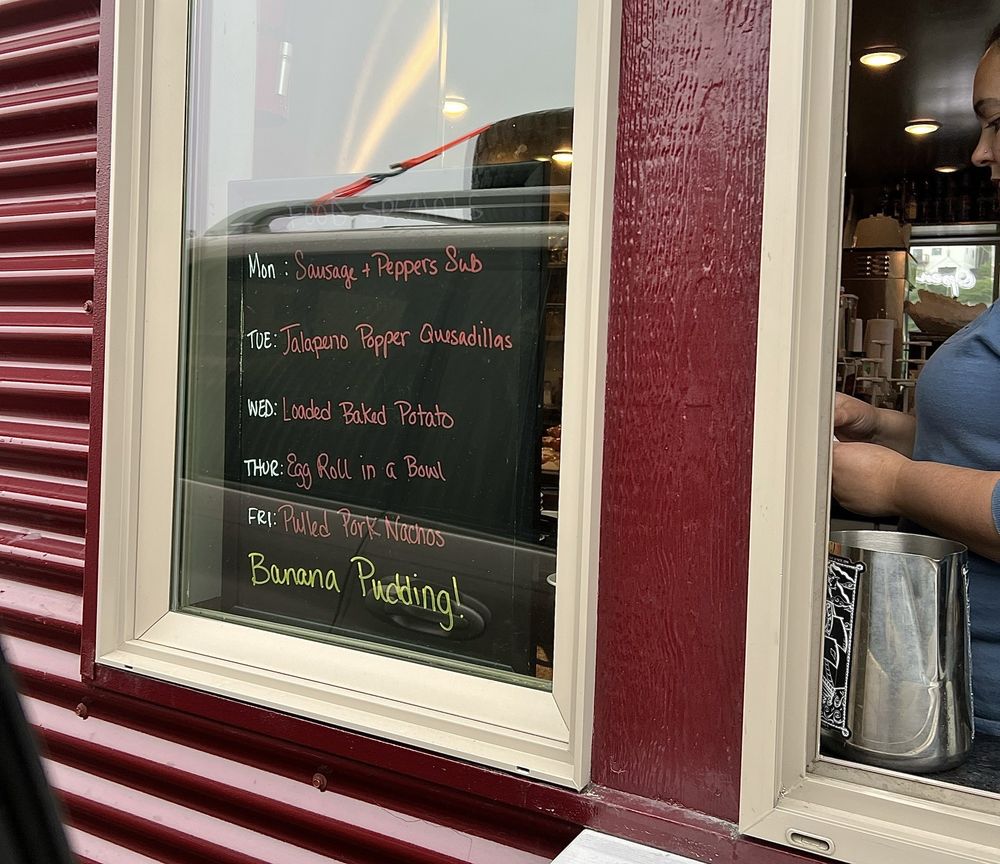 FOOD SPECIALS
Mon : Sausage + Peppers Sub
TUE: Jalapeno Popper Quesadillas
WED: Loaded Baked Potato
THUR: Egg Roll in a Bowl
FRI: Pulled Pork Nachos
Banana Pudding!